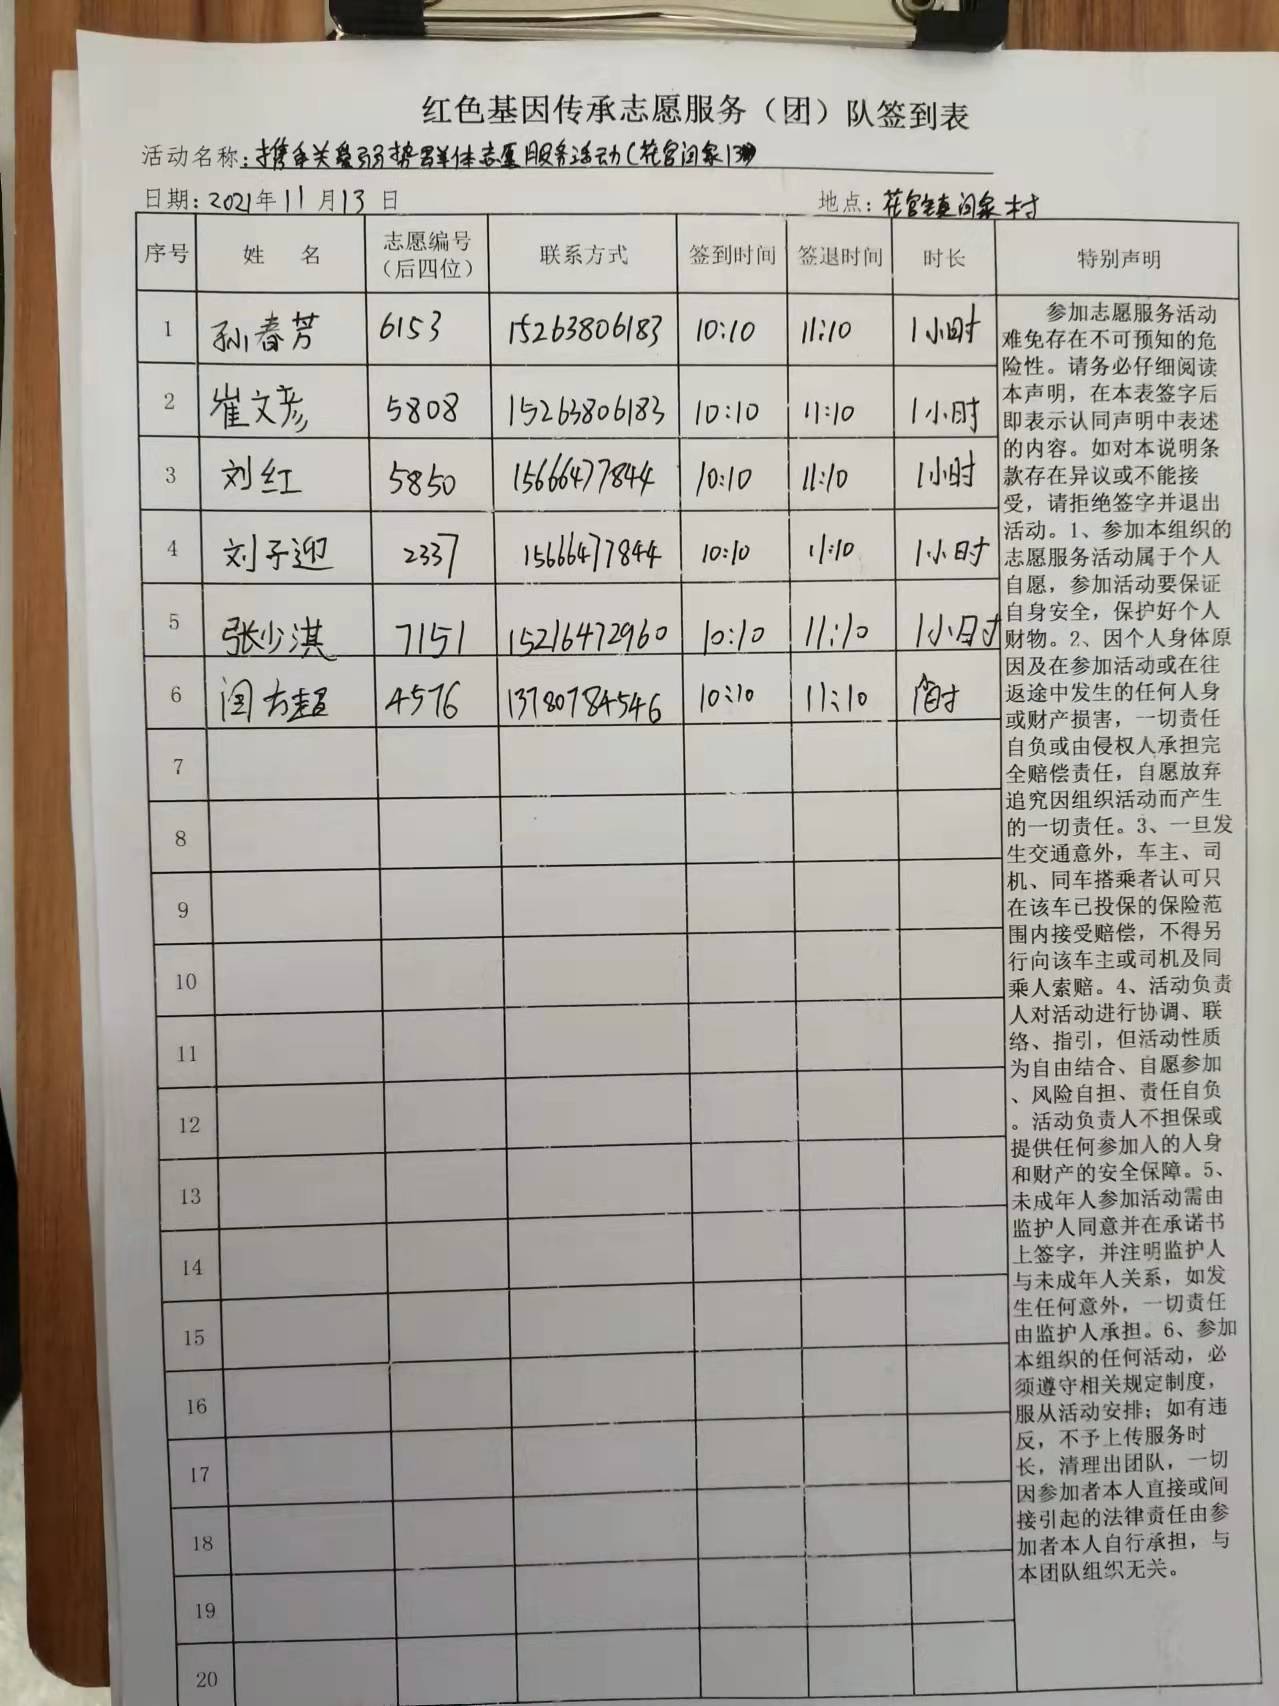 红色基因传承志愿服务（团）队签到表
活动名称：携手关爱弱势群体志愿服务活动（花官闫家）
日期：2021年11月13日 地点：花官镇闫家村
序号 姓 名 志愿编号（后四位） 联系方式 签到时间 签退时间 时长 特别声明
1 孙春芳 6153 15263806183 10:10 11:10 1小时
2 崔文彦 5808 15263806183 10:10 11:10 1小时
3 刘红 5850 15666477844 10:10 11:10 1小时
4 刘子迎 2337 15666477844 10:10 11:10 1小时
5 张少淇 7151 15216472960 10:10 11:10 1小时
6 闫方超 4576 13780784546 10:10 11:10 1小时
7
8
9
10
11
12
13
14
15
16
17
18
19
20
参加志愿服务活动
难免存在不可预知的危
险性。请务必仔细阅读
本声明，在本表签字后
即表示认同声明中表述
的内容。如对本说明条
款存在异议或不能接
受，请拒绝签字并退出
活动。1、参加本组织的
志愿服务活动属于个人
自愿，参加活动要保证
自身安全，保护好个人
财物。2、因个人身体原
因及在参加活动或在往
返途中发生的任何人身
或财产损害，一切责任
自负或由侵权人承担完
全赔偿责任，自愿放弃
追究因组织活动而产生
的一切责任。3、一旦发
生交通意外，车主、司
机、同车搭乘者认可只
在该车已投保的保险范
围内接受赔偿，不得另
行向该车主或司机及同
乘人索赔。4、活动负责
人对活动进行协调、联
络、指引，但活动性质
为自由结合、自愿参加
、风险自担、责任自负
。活动负责人不担保或
提供任何参加人的人身
和财产的安全保障。5、
未成年人参加活动需由
监护人同意并在承诺书
上签字，并注明监护人
与未成年人关系，如发
生任何意外，一切责任
由监护人承担。6、参加
本组织的任何活动，必
须遵守相关规定制度，
服从活动安排；如有违
反，不予上传服务时
长，清理出团队，一切
因参加者本人直接或间
接引起的法律责任由参
加者本人自行承担，与
本团队组织无关。